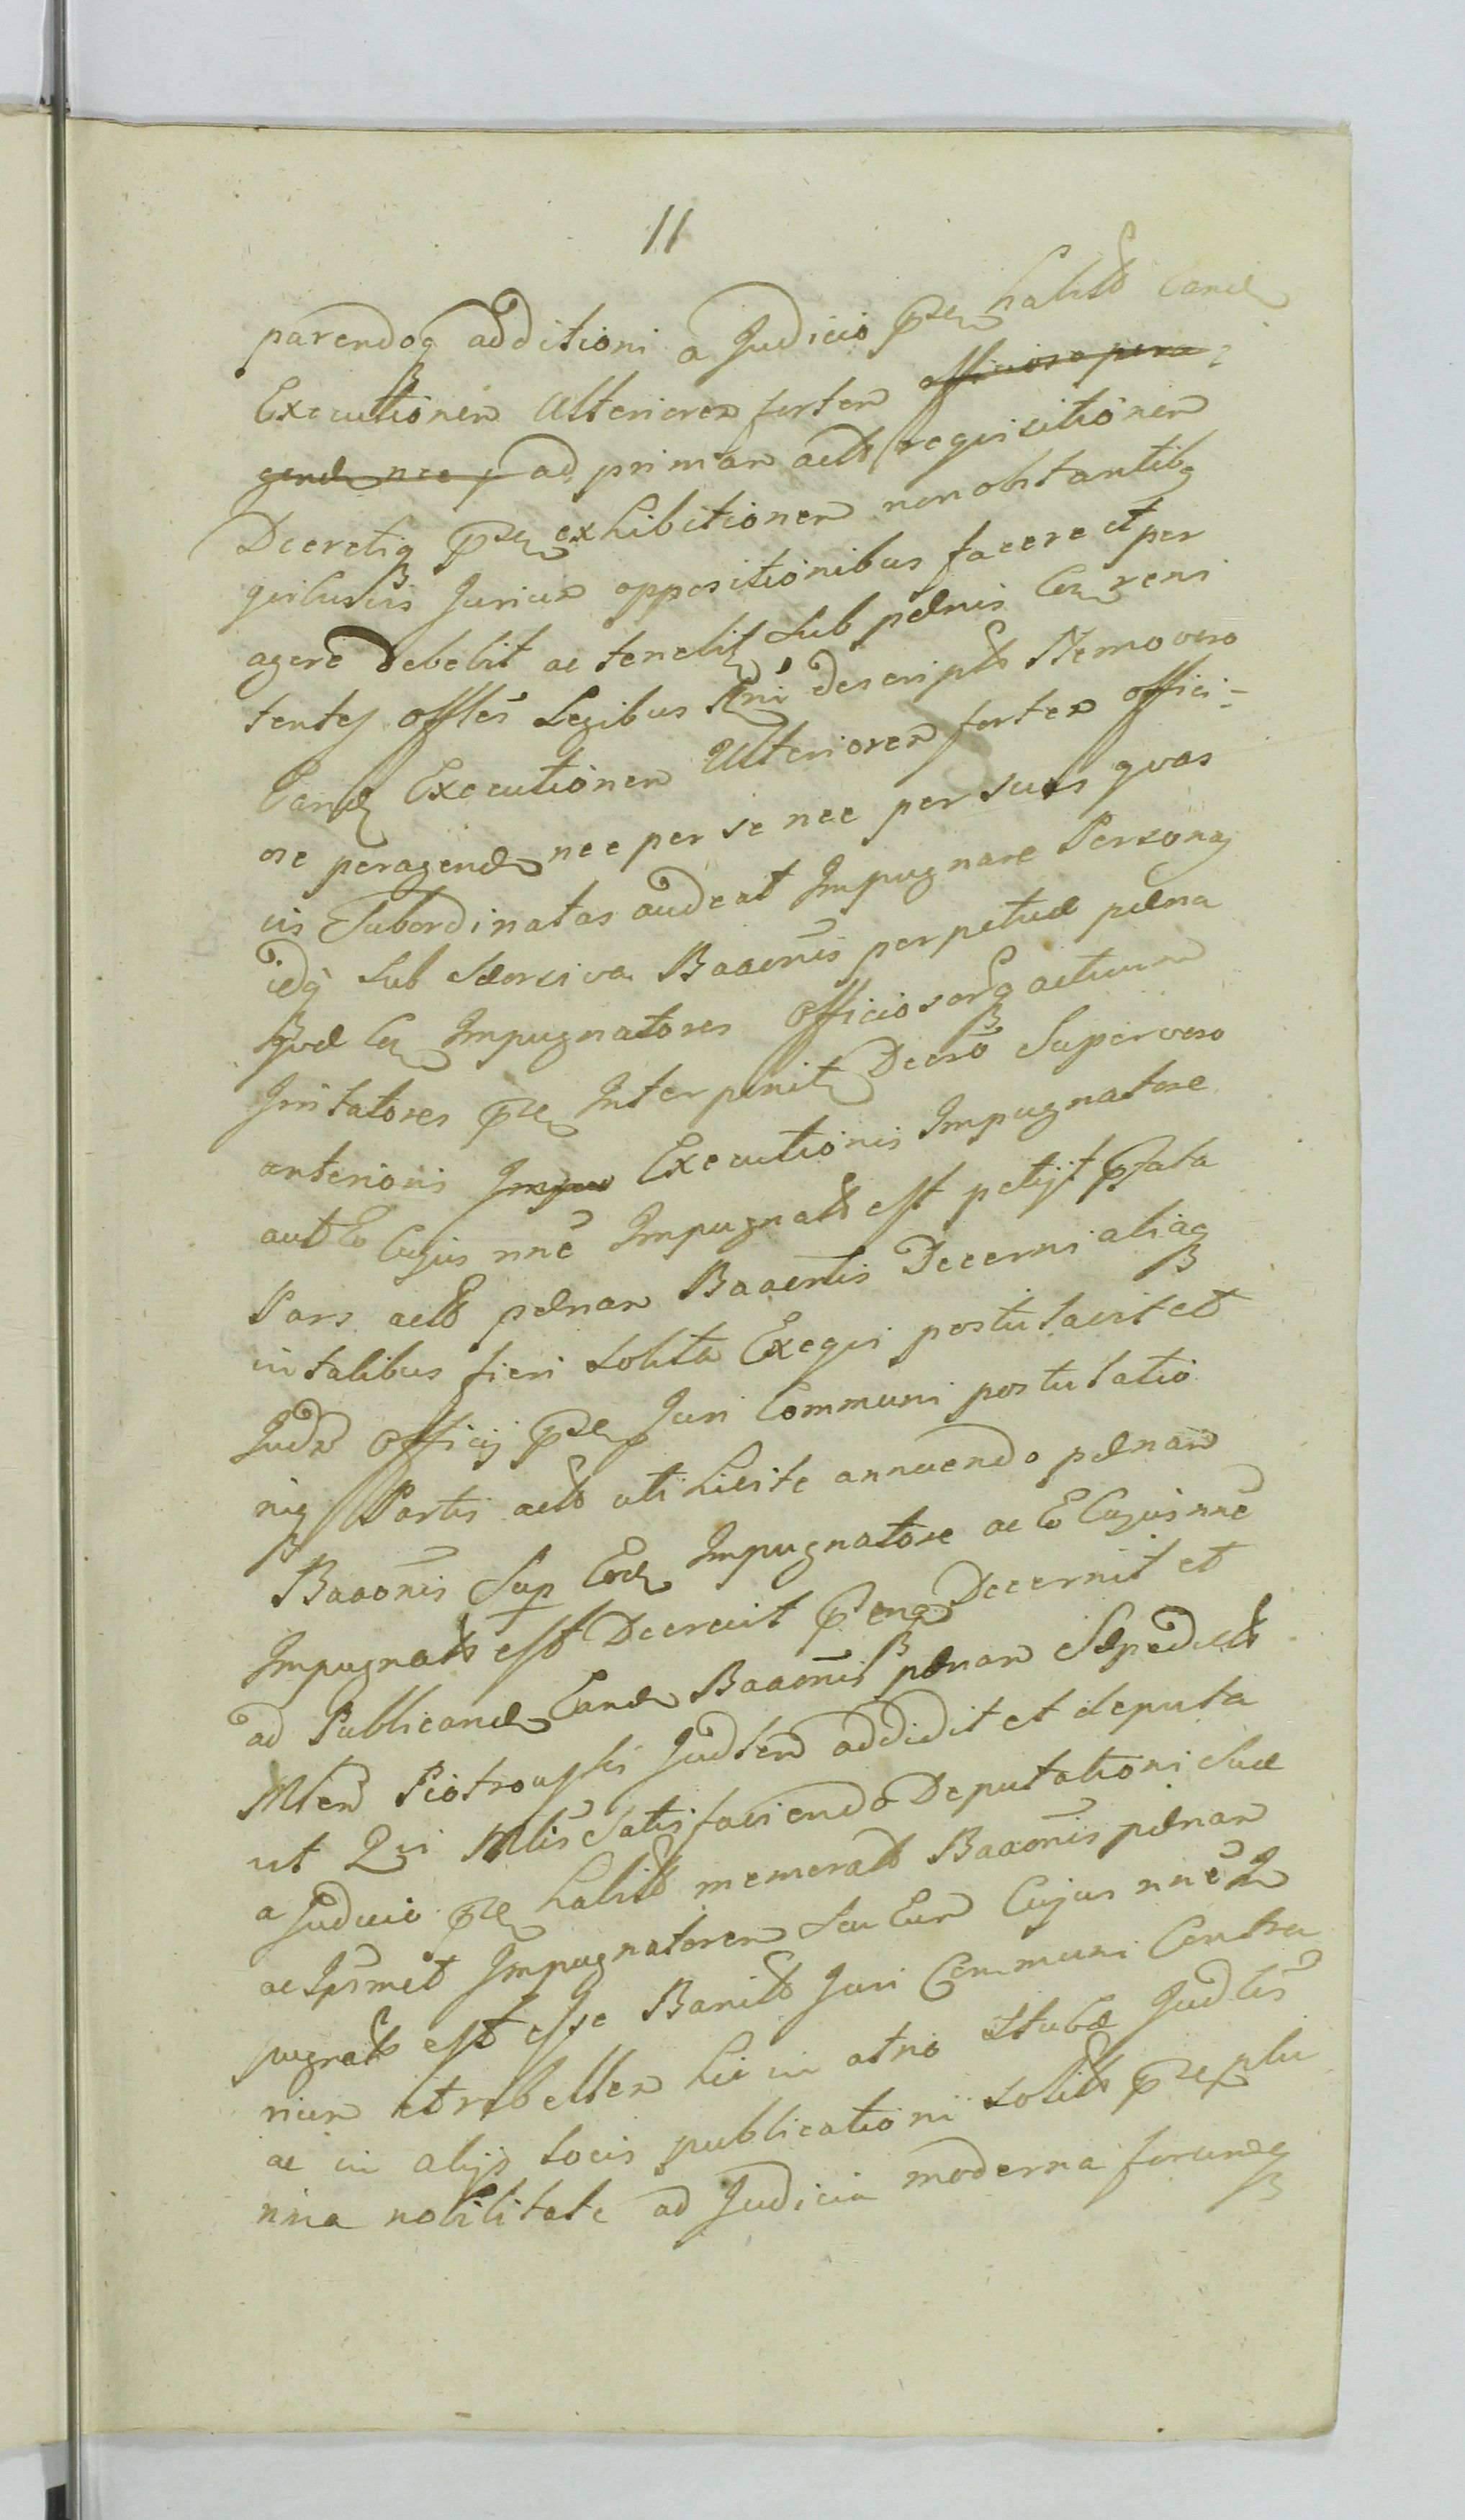 11
parendoq additioni a Judicio pse habita Eand
Executionem Ulteriorem fortem officiose pera-
gend nec p ad primam actis requisitionem
Decretiq pse exhibitionem non obstantibq
quibusvis Jurium oppositionibus facere et per
agere debebit ac tenebit Sub pænis Con reni
tentes offles Legibus Rni descriptis Nemo vero
Eand Executionem Ulteriorem fortem offici-
ose peragend nec per se nec per suas quas
vis Subordinatas audeat Impugnare Personas
idq Sub Seorsiva Baaonis perpetuæ pæna
quæ Con Impugnatores officiosorq actuum
Irritatores pse Interponit Decro Super vero
anterioris Impu Executionis Impugnatore
aut Eo Cujus nne Impugnats est petijt pfata
Pars acts pænam Baaonis Decerni aliaq
in talibus fieri solita Exequi postulavit et
Judm officij pse Juri Communi postulatio
niq Partis acts uti licite annuendo pænam
Baaonis Sup Eod Impugnatore ac Eo Cujus nne
Impugnats est Decrevit psenq Decernit et
ad Publicand Eand Baaonis pænam Sæpedicts
Mlem Piotrowski Judlem addidit et deputa
ut Qui Mlis Satisfaciendo Deputationi Suæ
a Judicio pse habita memorats Baaonis pænam
ac Ipsmet Impugnatorem Seu Eum Cujus nne Im
pugnats est esse Banits Juri Communi Contra
rium et rebellem hic in atrio Stubæ Judlis
ac in alijs Locis publicationi solits pse plu
rima nobilitate ad Judicia moderna forumq